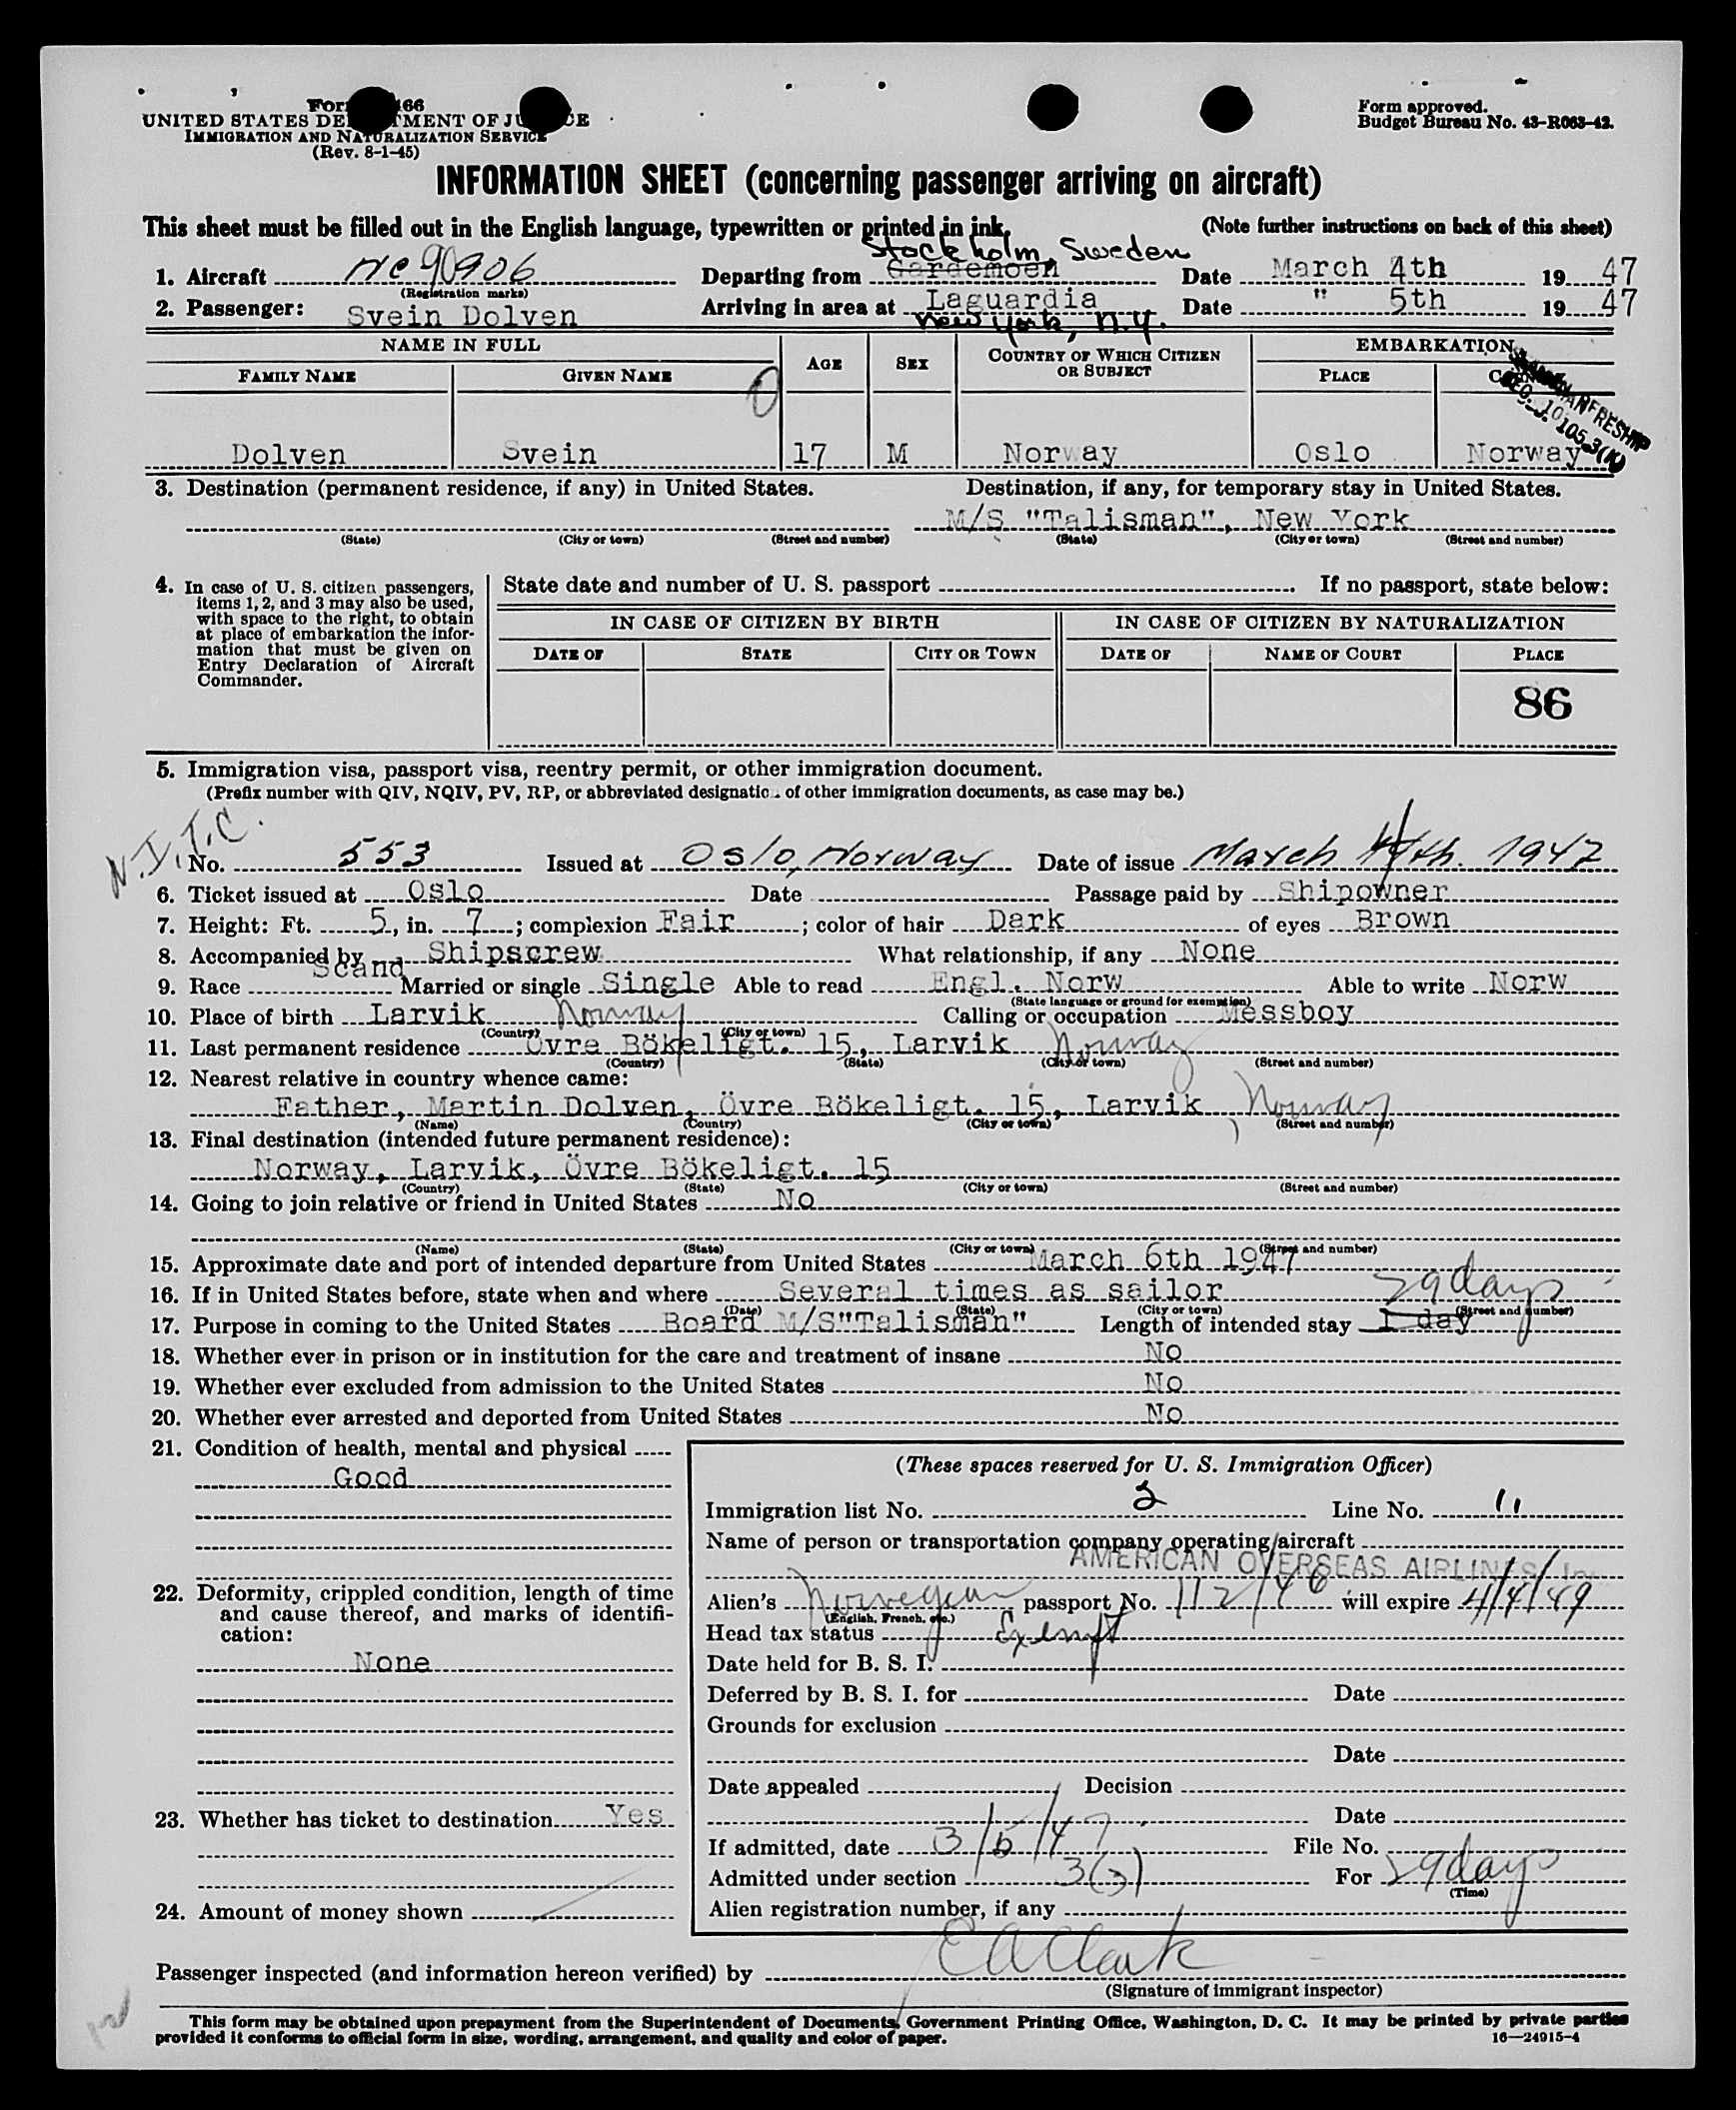 Form 466
UNITED STATES DEPARTMENT OF JUSTICE
IMMIGRATION AND NATURALIZATION SERVICE
(Rev. 8-1-45)
Form approved.
Budget Bureau No. 43-R063-42.
INFORMATION SHEET (concerning passenger arriving on aircraft)
This sheet must be filled out in the English language, typewritten or printed in ink. (Note further instructions on back of this sheet)
Stockholm, Sweden
1. Aircraft NC 90906 Departing from Gardemoen Date March 4th 1947
(Registration marks)
2. Passenger: Svein Dolven Arriving in area at Laguardia Date " 5th 1947
New York, N.Y.
NAME IN FULL AGE SEX COUNTRY OF WHICH CITIZEN OR SUBJECT EMBARKATION
FAMILY NAME GIVEN NAME PLACE
Dolven Svein 17 M Norway Oslo Norway
3. Destination (permanent residence, if any) in United States. Destination, if any, for temporary stay in United States.
M/S "Talisman", New York
(State) (City or town) (Street and number) (State) (City or town) (Street and number)
4. In case of U. S. citizen passengers, items 1, 2, and 3 may also be used, with space to the right, to obtain at place of embarkation the information that must be given on Entry Declaration of Aircraft Commander.
State date and number of U. S. passport . If no passport, state below:
IN CASE OF CITIZEN BY BIRTH IN CASE OF CITIZEN BY NATURALIZATION
DATE OF STATE CITY OR TOWN DATE OF NAME OF COURT PLACE
86
5. Immigration visa, passport visa, reentry permit, or other immigration document.
(Prefix number with QIV, NQIV, PV, RP, or abbreviated designation of other immigration documents, as case may be.)
N.I.T.C.
No. 553 Issued at Oslo, Norway Date of issue March 4th. 1947
6. Ticket issued at Oslo Date Passage paid by Shipowner
7. Height: Ft. 5, in. 7; complexion Fair; color of hair Dark of eyes Brown
8. Accompanied by Shipscrew What relationship, if any None
9. Race Scand Married or single Single Able to read Engl. Norw Able to write Norw
(State language or ground for exemption)
10. Place of birth Larvik Norway Calling or occupation Messboy
(Country) (City or town)
11. Last permanent residence Övre Bökeligt. 15, Larvik Norway
(Country) (State) (City or town) (Street and number)
12. Nearest relative in country whence came:
Father, Martin Dolven, Övre Bökeligt. 15, Larvik Norway
(Name) (Country) (City or town) (Street and number)
13. Final destination (intended future permanent residence):
Norway, Larvik, Övre Bökeligt. 15
(Country) (State) (City or town) (Street and number)
14. Going to join relative or friend in United States No
(Name) (State) (City or town) (Street and number)
15. Approximate date and port of intended departure from United States March 6th 1947
16. If in United States before, state when and where Several times as sailor 29 days
(Date) (State) (City or town) (Street and number)
17. Purpose in coming to the United States Board M/S"Talisman" Length of intended stay 1 day
18. Whether ever in prison or in institution for the care and treatment of insane No
19. Whether ever excluded from admission to the United States No
20. Whether ever arrested and deported from United States No
21. Condition of health, mental and physical
Good
22. Deformity, crippled condition, length of time and cause thereof, and marks of identification:
None
23. Whether has ticket to destination Yes
24. Amount of money shown
(These spaces reserved for U. S. Immigration Officer)
Immigration list No. 2 Line No. 11
Name of person or transportation company operating aircraft
AMERICAN OVERSEAS AIRLINES, Inc.
Alien's Norwegian passport No. 112/46 will expire 4/4/49
(English, French, etc.)
Head tax status Exempt
Date held for B. S. I.
Deferred by B. S. I. for Date
Grounds for exclusion
Date
Date appealed Decision
Date
If admitted, date 3/5/47 File No.
Admitted under section 3(3) For 29 days
(Time)
Alien registration number, if any
Passenger inspected (and information hereon verified) by E A Clark
(Signature of immigrant inspector)
This form may be obtained upon prepayment from the Superintendent of Documents, Government Printing Office, Washington, D. C. It may be printed by private parties
provided it conforms to official form in size, wording, arrangement, and quality and color of paper. 16—24915-4